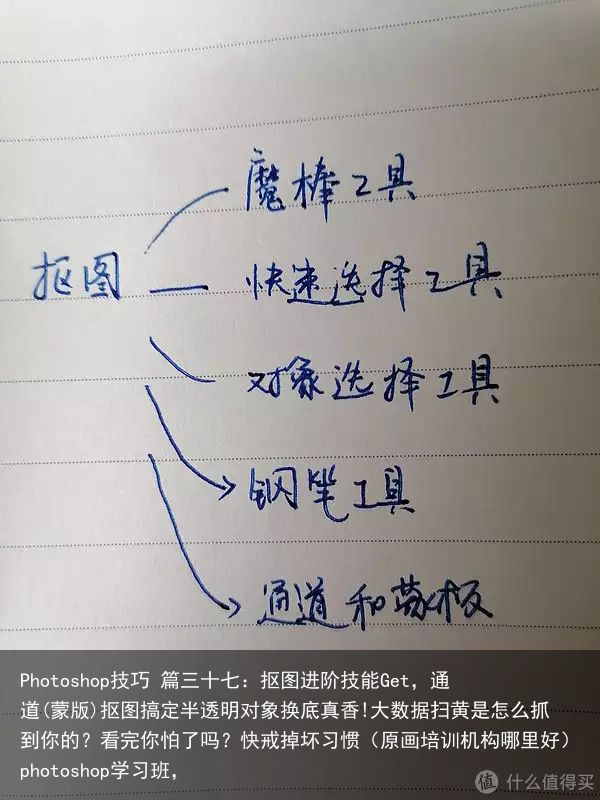 魔棒工具
抠图
快速选择工具
对象选择工具
钢笔工具
通道和蒙板
Photoshop技巧 篇三十七：抠图进阶技能Get，通
道(蒙版)抠图搞定半透明对象换底真香!大数据扫黄是怎么抓
到你的？看完你怕了吗？快戒掉坏习惯（原画培训机构哪里好）
photoshop学习班，
值 什么值得买